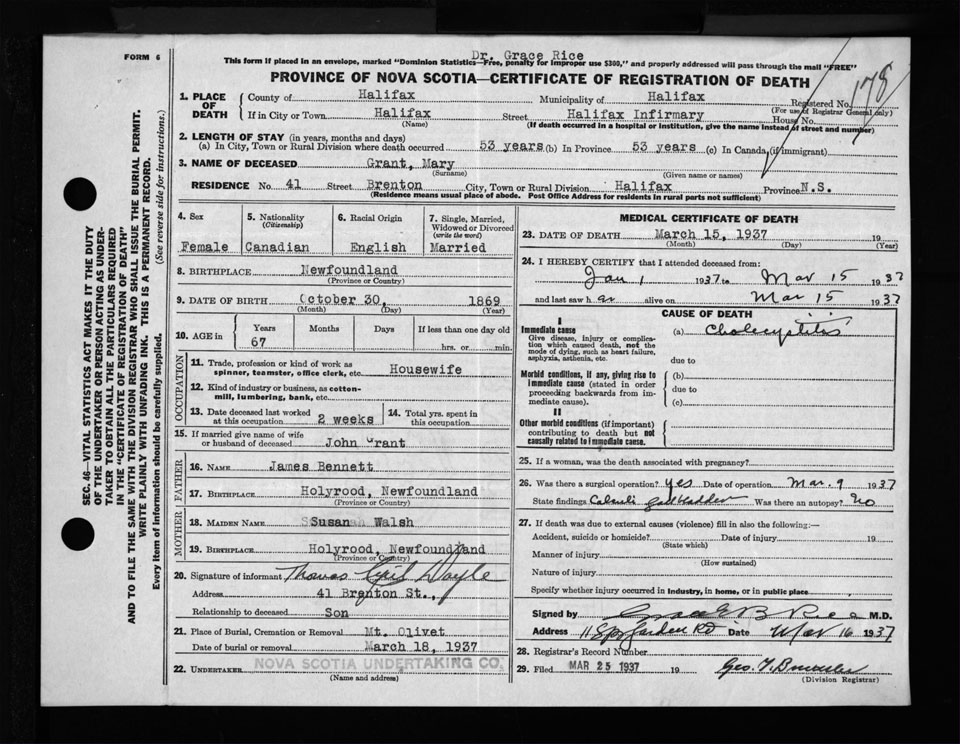 FORM 6
Dr. Grace Rice
This form if placed in an envelope, marked "Dominion Statistics—Free, penalty for improper use $300," and properly addressed will pass through the mail "FREE"
PROVINCE OF NOVA SCOTIA—CERTIFICATE OF REGISTRATION OF DEATH
178
1. PLACE OF DEATH
County of Halifax Municipality of Halifax Registered No.
(For use of Registrar General only)
If in City or Town Halifax Street Halifax Infirmary House No.
(Name) (If death occurred in a hospital or institution, give the name instead of street and number)
2. LENGTH OF STAY (in years, months and days)
(a) In City, Town or Rural Division where death occurred 53 years (b) In Province 53 years (c) In Canada (if immigrant)
3. NAME OF DECEASED Grant, Mary
(Surname) (Given name or names)
RESIDENCE No. 41 Street Brenton City, Town or Rural Division Halifax Province N.S.
(Residence means usual place of abode. Post Office Address for residents in rural parts not sufficient)
4. Sex 5. Nationality (Citizenship) 6. Racial Origin 7. Single, Married, Widowed or Divorced (write the word)
Female Canadian English Married
8. BIRTHPLACE Newfoundland
(Province or Country)
9. DATE OF BIRTH October 30, 1869
(Month) (Day) (Year)
10. AGE in Years Months Days If less than one day old
67 hrs. or min.
OCCUPATION
11. Trade, profession or kind of work as spinner, teamster, office clerk, etc. Housewife
12. Kind of industry or business, as cotton-mill, lumbering, bank, etc.
13. Date deceased last worked at this occupation 2 weeks 14. Total yrs. spent in this occupation
15. If married give name of wife or husband of deceased John Grant
FATHER
16. NAME James Bennett
17. BIRTHPLACE Holyrood, Newfoundland
(Province or Country)
MOTHER
18. MAIDEN NAME Susan Walsh
19. BIRTHPLACE Holyrood, Newfoundland
(Province or Country)
20. Signature of informant Thomas Cyril Doyle
Address 41 Brenton St.,
Relationship to deceased Son
21. Place of Burial, Cremation or Removal Mt. Olivet
Date of burial or removal March 18, 1937
22. UNDERTAKER NOVA SCOTIA UNDERTAKING CO.
(Name and address)
MEDICAL CERTIFICATE OF DEATH
23. DATE OF DEATH March 15, 1937 19
(Month) (Day) (Year)
24. I HEREBY CERTIFY that I attended deceased from:
Jan 1 1937 to Mar 15 1937
and last saw her alive on Mar 15 1937
CAUSE OF DEATH
I
Immediate cause (a) Cholecystitis
Give disease, injury or complication which caused death, not the mode of dying, such as heart failure, asphyxia, asthenia, etc.
due to
Morbid conditions, if any, giving rise to immediate cause (stated in order proceeding backwards from immediate cause).
(b)
due to
(c)
II
Other morbid conditions (if important) contributing to death but not causally related to immediate cause.
25. If a woman, was the death associated with pregnancy?
26. Was there a surgical operation? yes Date of operation Mar. 9 1937
State findings Calculi Gall bladder Was there an autopsy? No
27. If death was due to external causes (violence) fill in also the following:—
Accident, suicide or homicide? Date of injury 19
(State which)
Manner of injury
(How sustained)
Nature of injury
Specify whether injury occurred in industry, in home, or in public place
Signed by Grace E B Rice M.D.
Address 11 Spg Garden Rd Date Mar 16 1937
28. Registrar's Record Number
29. Filed MAR 25 1937 19
(Division Registrar)
SEC. 46—VITAL STATISTICS ACT MAKES IT THE DUTY
OF THE UNDERTAKER OR PERSON ACTING AS UNDER-
TAKER TO OBTAIN ALL THE PARTICULARS REQUIRED
IN THE "CERTIFICATE OF REGISTRATION OF DEATH"
AND TO FILE THE SAME WITH THE DIVISION REGISTRAR WHO SHALL ISSUE THE BURIAL PERMIT.
WRITE PLAINLY WITH UNFADING INK. THIS IS A PERMANENT RECORD.
Every item of information should be carefully supplied. (See reverse side for instructions.)